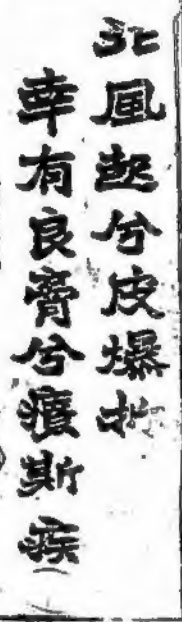 北風起兮皮爆拆
幸有良膏兮療斯疾